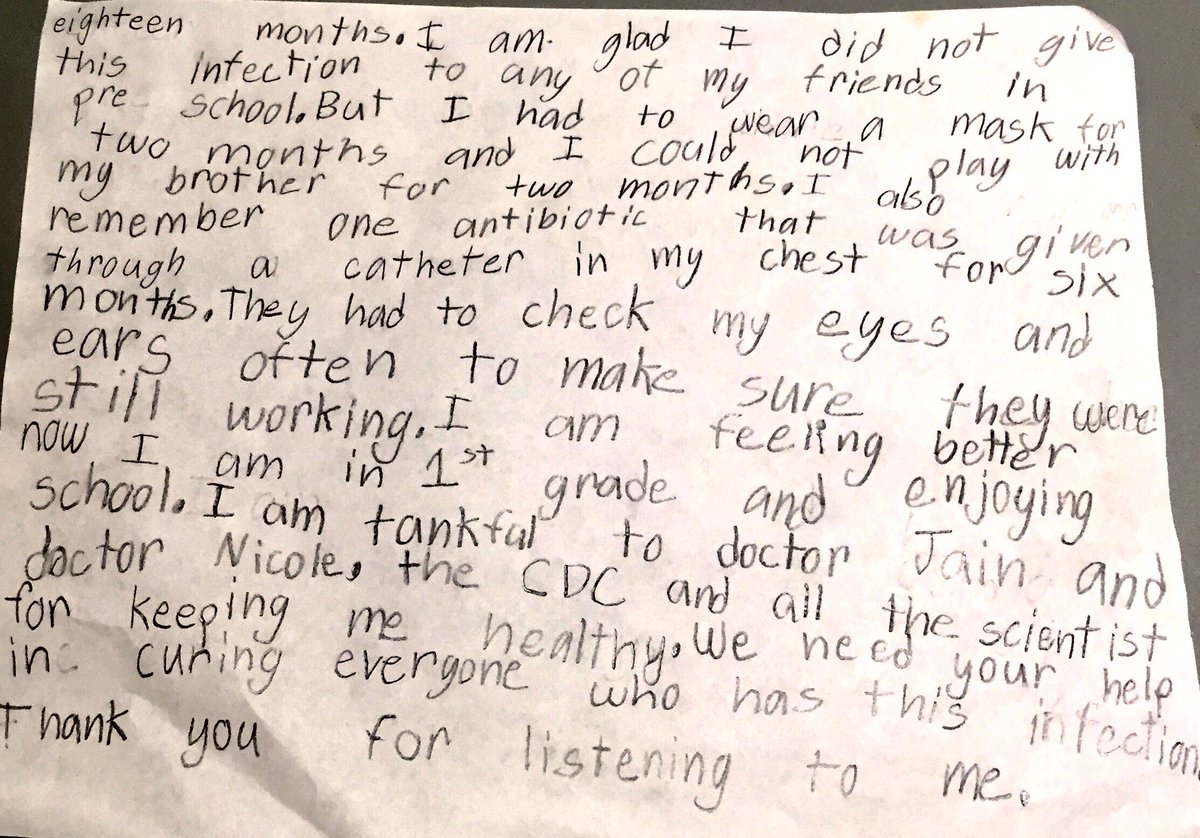 eighteen months. I am glad I did not give
this infection to any of my friends in
pre school. But I had to wear a mask for
two months and I could not play with
my brother for two months. I also
remember one antibiotic that was given
through a catheter in my chest for six
months. They had to check my eyes and
ears often to make sure they were
still working. I am feeling better
now I am in 1st grade and enjoying
school. I am tankful to doctor Jain and
doctor Nicole, the CDC and all the scientist
for keeping me healthy. We need your help
in curing everyone who has this infection.
Thank you for listening to me.